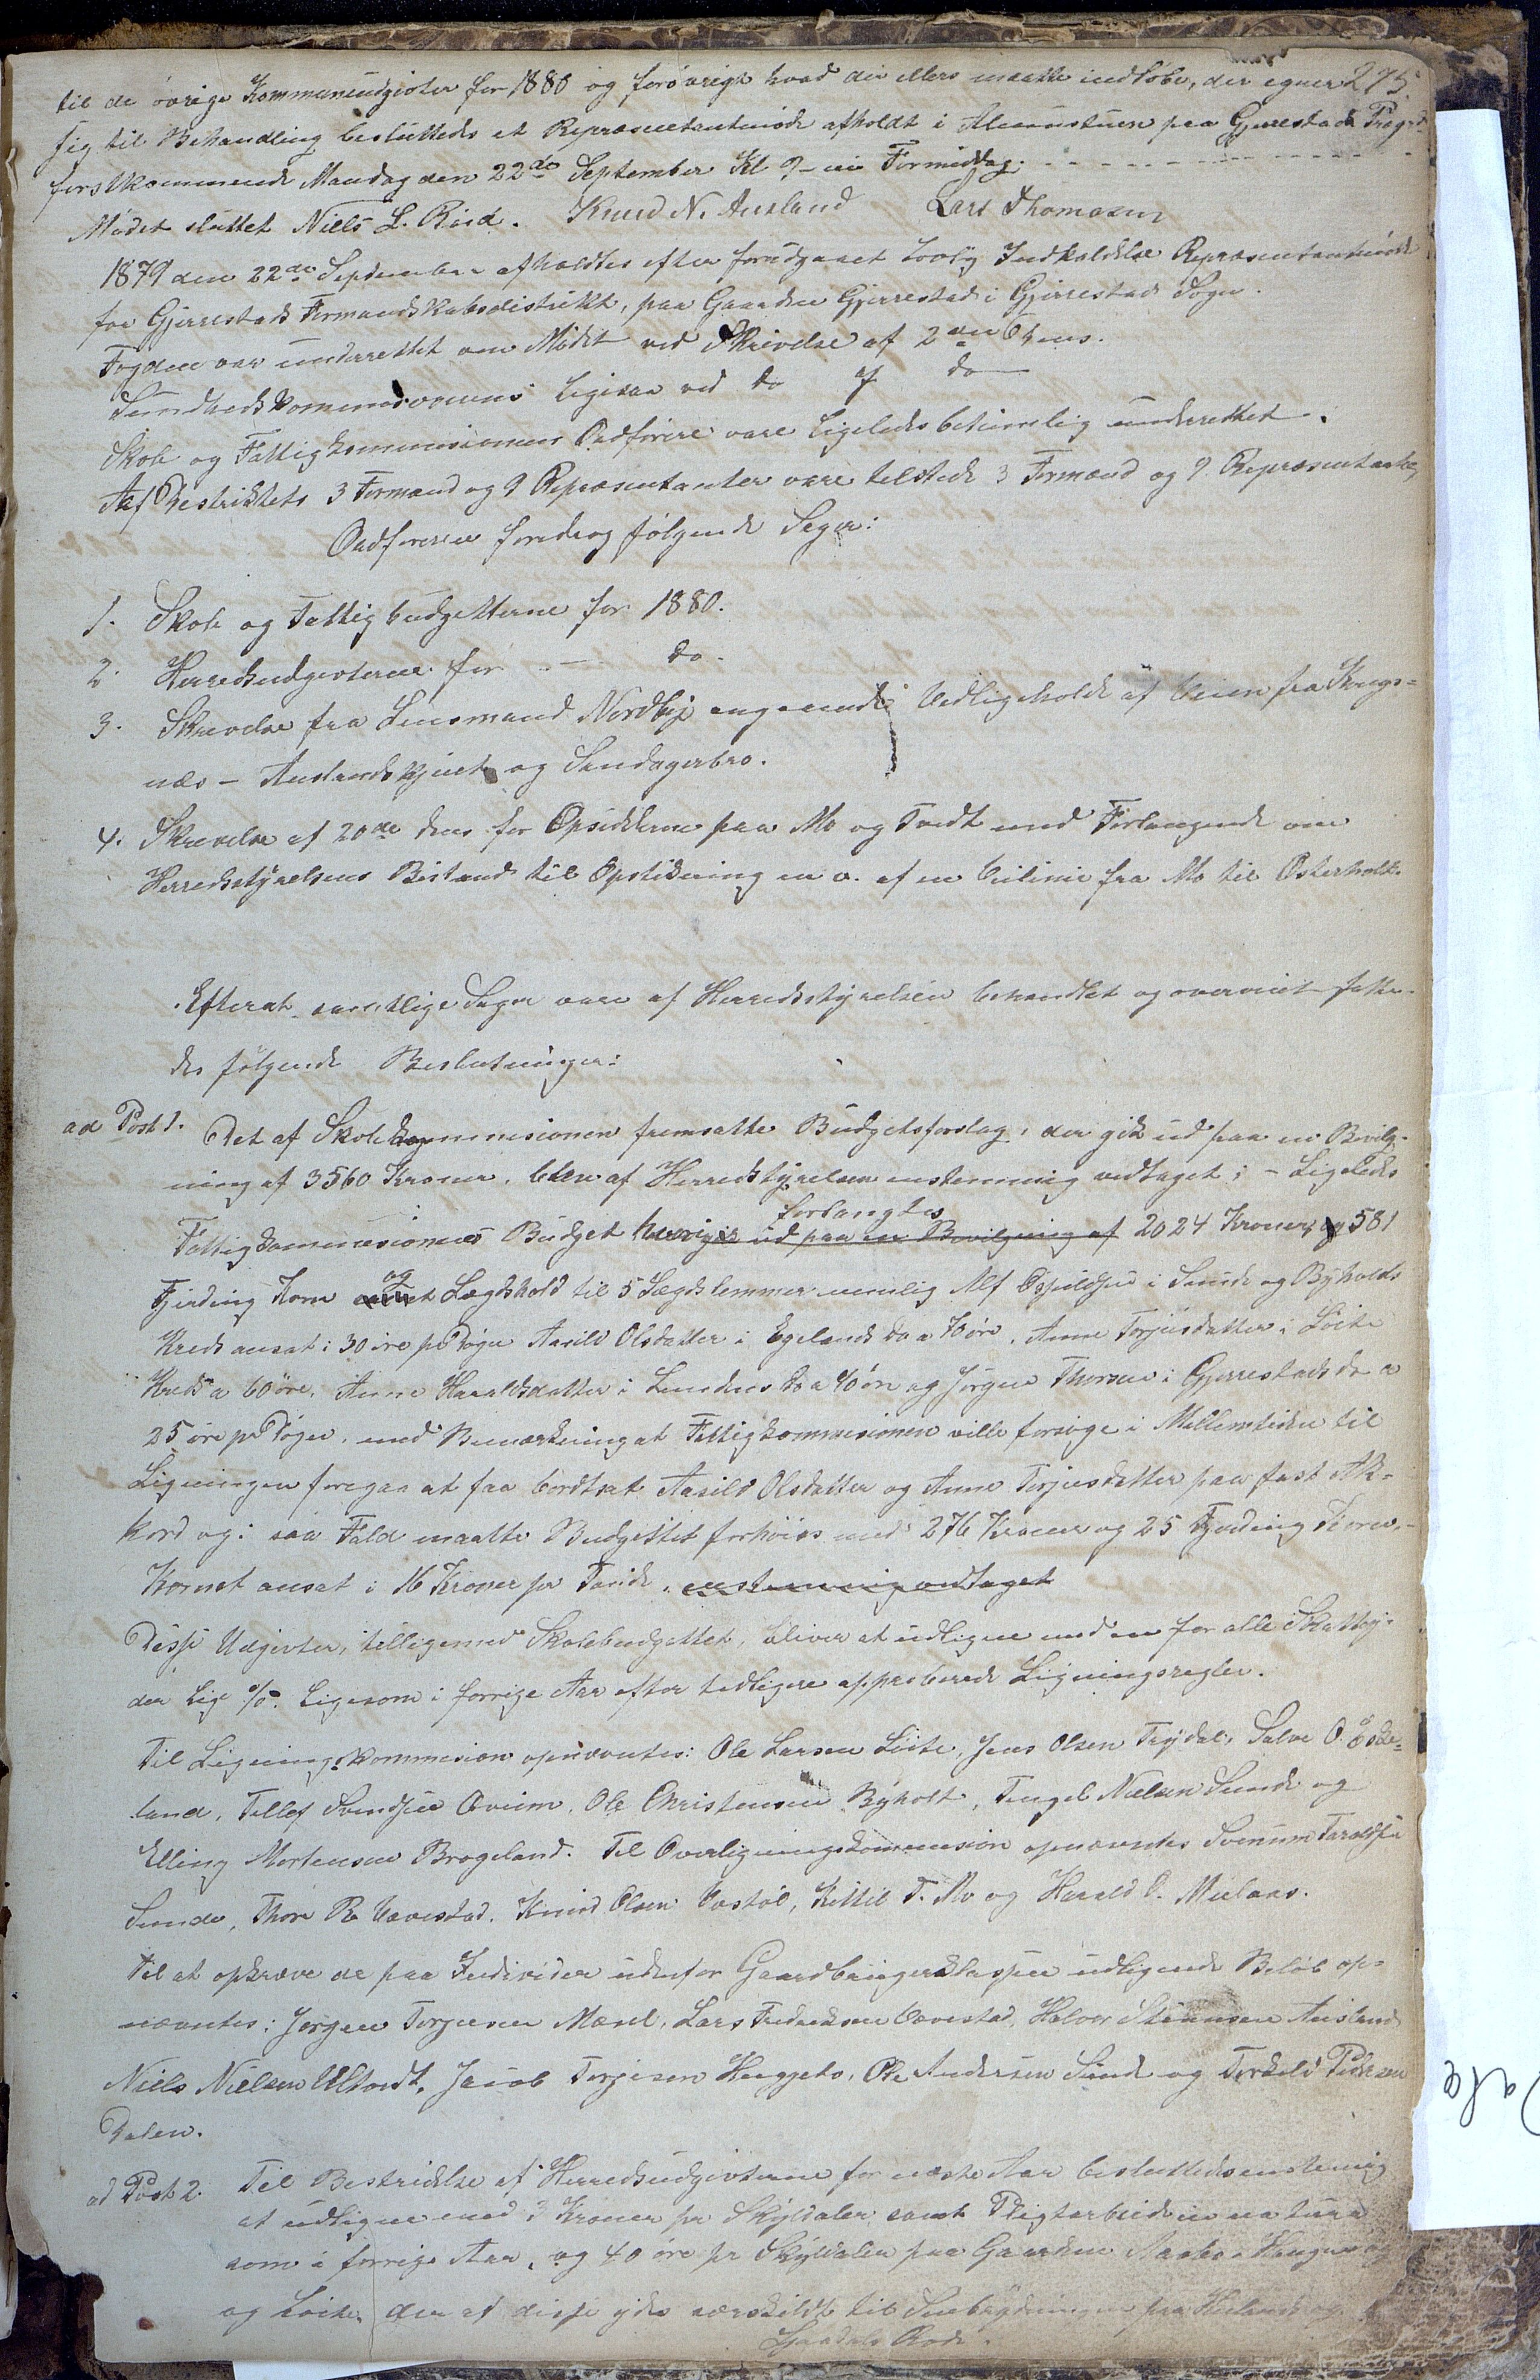 275
til de øvrige Kommuneudgivter for 1880 og forøvrigt hvad der ellers maatte indløbe, der egner
sig til Behandling besluttedes et Repræsentantmøde afholdt i Almuestuen paa Gjerrestads Prægd
førstkommende Mandag den 22de September Kl 9 – ni Formiddag.
Mødet sluttet Niels L. Riis. Knud N. Ausland Lars Thomasen
1879 den 22de September afholdtes efter foregaaet lovlig Indkaldelse Repræsentantmøde
for Gjerrestads Formandskabsdistrikt, paa Gaarden Gjerrestad i Gjerrestads Sogn.
Fogden var underrettet om Mødet ved Skrivelse af 2den ds.
Sundhedskommisionens ligesaa ved do af do
Skole og Fattigkommisionens Ordførere vare ligeledes betimelig underrettet.
Af Distriktets 3 Formænd og 9 Repræsentanter vare tilstede 3 Formænd og 9 Repræsentanter,
Ordføreren foredrog følgende Sager:
1. Skole og Fattigbudgetterne for 1880.
2. Herredsudgivterne for – do.
3. Skrivelse fra Lensmand Nordby angaaende Vedligehold af Veien fra
næs – Auslandskjenet og Sundagerbro.
4. Skrivelse af 20de dens for Opsidderne paa Mo og Tvedt med Forlangende om
Herredsstyrelsens Bistand til Opstikning m. v. af en Veilinie fra Mo til Østerholt.
Efterat samtlige Sager vare af Herredsstyrelsen behandlet og overveiet fatte-
des følgende Beslutninger:
ad Post 1. Det af Skolekommisionen fremsatte Budgetforslag, der gik ud paa en Bevilg-
ning af 3560 Kroner, blev af Herredstyrelsen enstemmig vedtaget; – Ligeledes
forlangtes
Fattigkommisionens Budget hvorigjr ud paa en Bevilgning af 2024 Kroner, og 581
Fjerding Korn og Lægdshold til 5 Lægdslemmer nemlig Alf Ospildsen i Sunde og Byholds
Kreds ansat i 30 øre pr Døgn Aasild Olsdatter i Egelands do a 70 øre, Anne Terjusdatter i Løite
Kreds a 60 øre, Anne Haraldsdatter i Lundens do a 40 øre og Jørgen Thorsen i Gjerrestads do a
25 øre pr Døgn, med Bemærkning at Fattigkommisionen ville forsøge i Mellemtiden til
Ligningen foregaa at faa bortsat Aasild Olsdatter og Anne Terjusdatter paa fast Ak-
kord og i saa Fald maatte Budgettet forhøies med 276 Kroner og 25 Fjerding Korn.–
Kornet ansat i 16 Kroner pr Tønde. enstemmig vedtaget
Disse Udgivter, tilligemed Skolebudgettet, bliver at udligne med en for alle Skattey-
der lige %. ligesom i forrige Aar efter tidligere approberede Ligningsregler.
Til Ligningskommision opnævntes: Ole Larsen Løite, Jens Olsen Trydal, Salve O. Eske-
land, Tellef Svendsen Qveim, Ole Christensen Byholt, Tengel Nielsen Sunde og
Elling Mortensen Brageland. Til Overligningskommission opnævntes Svenum Taraldsen
Sunde, Thore R. Vævestad, Knud Olsen Vastøl, Kittil T. Mo og Harald O. Mielaas.
Til at opkræve de paa Individer udenfor Gaardbrugerklassen udlignede Beløb op-
nævntes: Jørgen Terjusen Mæsel, Lars Fredriksen Vævestad, Halvor Stiansen Ausland
Niels Nielsen Ulltvedt, Jacob Terjesen Heggets, Ole Andersen Sunde og Terkeld Pedersen
Dalen.
ad Post 2. Til Bestridelse af Herredsudgivterne for næste Aar besluttedes enstemmig
at udligne med 3 Kroner pr Skyldaler, samt Pligtarbeide in natura
som i forrige Aar, og 40 øre pr Skyldaler paa Gaarden
og Løite, der af disse ydes særskildt til Snebrydningen paa
Rode.